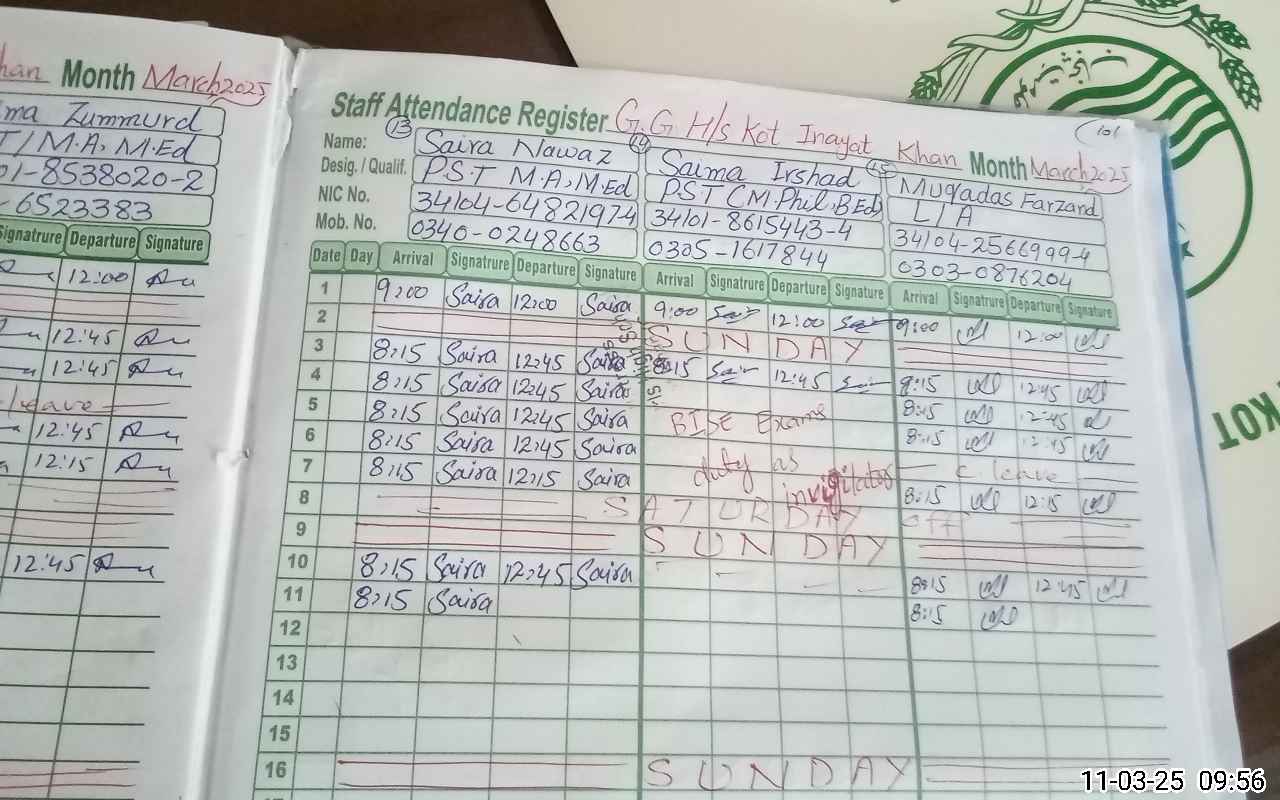 Month March 2025
Zummurd
M.A, M.Ed
8538020-2
6523383
Departure Signature
12:00
12:45
12:45
leave
12:45
12:15
12:45
101
Staff Attendance Register G. G. H/s Kot Inayat Khan Month March 2025
Name: 13 Saira Nawaz 14 Saima Irshad 15 Muqadas Farzand
Desig. / Qualif. P.S.T M.A, M.Ed PST (M.Phil, B.Ed) L/A
NIC No. 34104-6482197-4 34101-8615443-4 34104-2566999-4
Mob. No. 0340-0248663 0305-1617844 0303-0876204
Date Day Arrival Signatrure Departure Signature Arrival Signatrure Departure Signature Arrival Signatrure Departure Signature
1 9:00 Saira 12:00 Saira 9:00 12:00 9:00 12:00
2 SUNDAY
3 8:15 Saira 12:45 Saira 8:15 12:45 8:15 12:45
4 8:15 Saira 12:45 Saira 8:15 12:45
5 8:15 Saira 12:45 Saira BISE Exams 8:15 12:45
6 8:15 Saira 12:45 Saira duty as C. leave
7 8:15 Saira 12:15 Saira invigilator 8:15 12:15
8 SATURDAY off
9 SUNDAY
10 8:15 Saira 12:45 Saira 8:15 12:45
11 8:15 Saira 8:15
12
13
14
15
16 SUNDAY
KOT
11-03-25 09:56